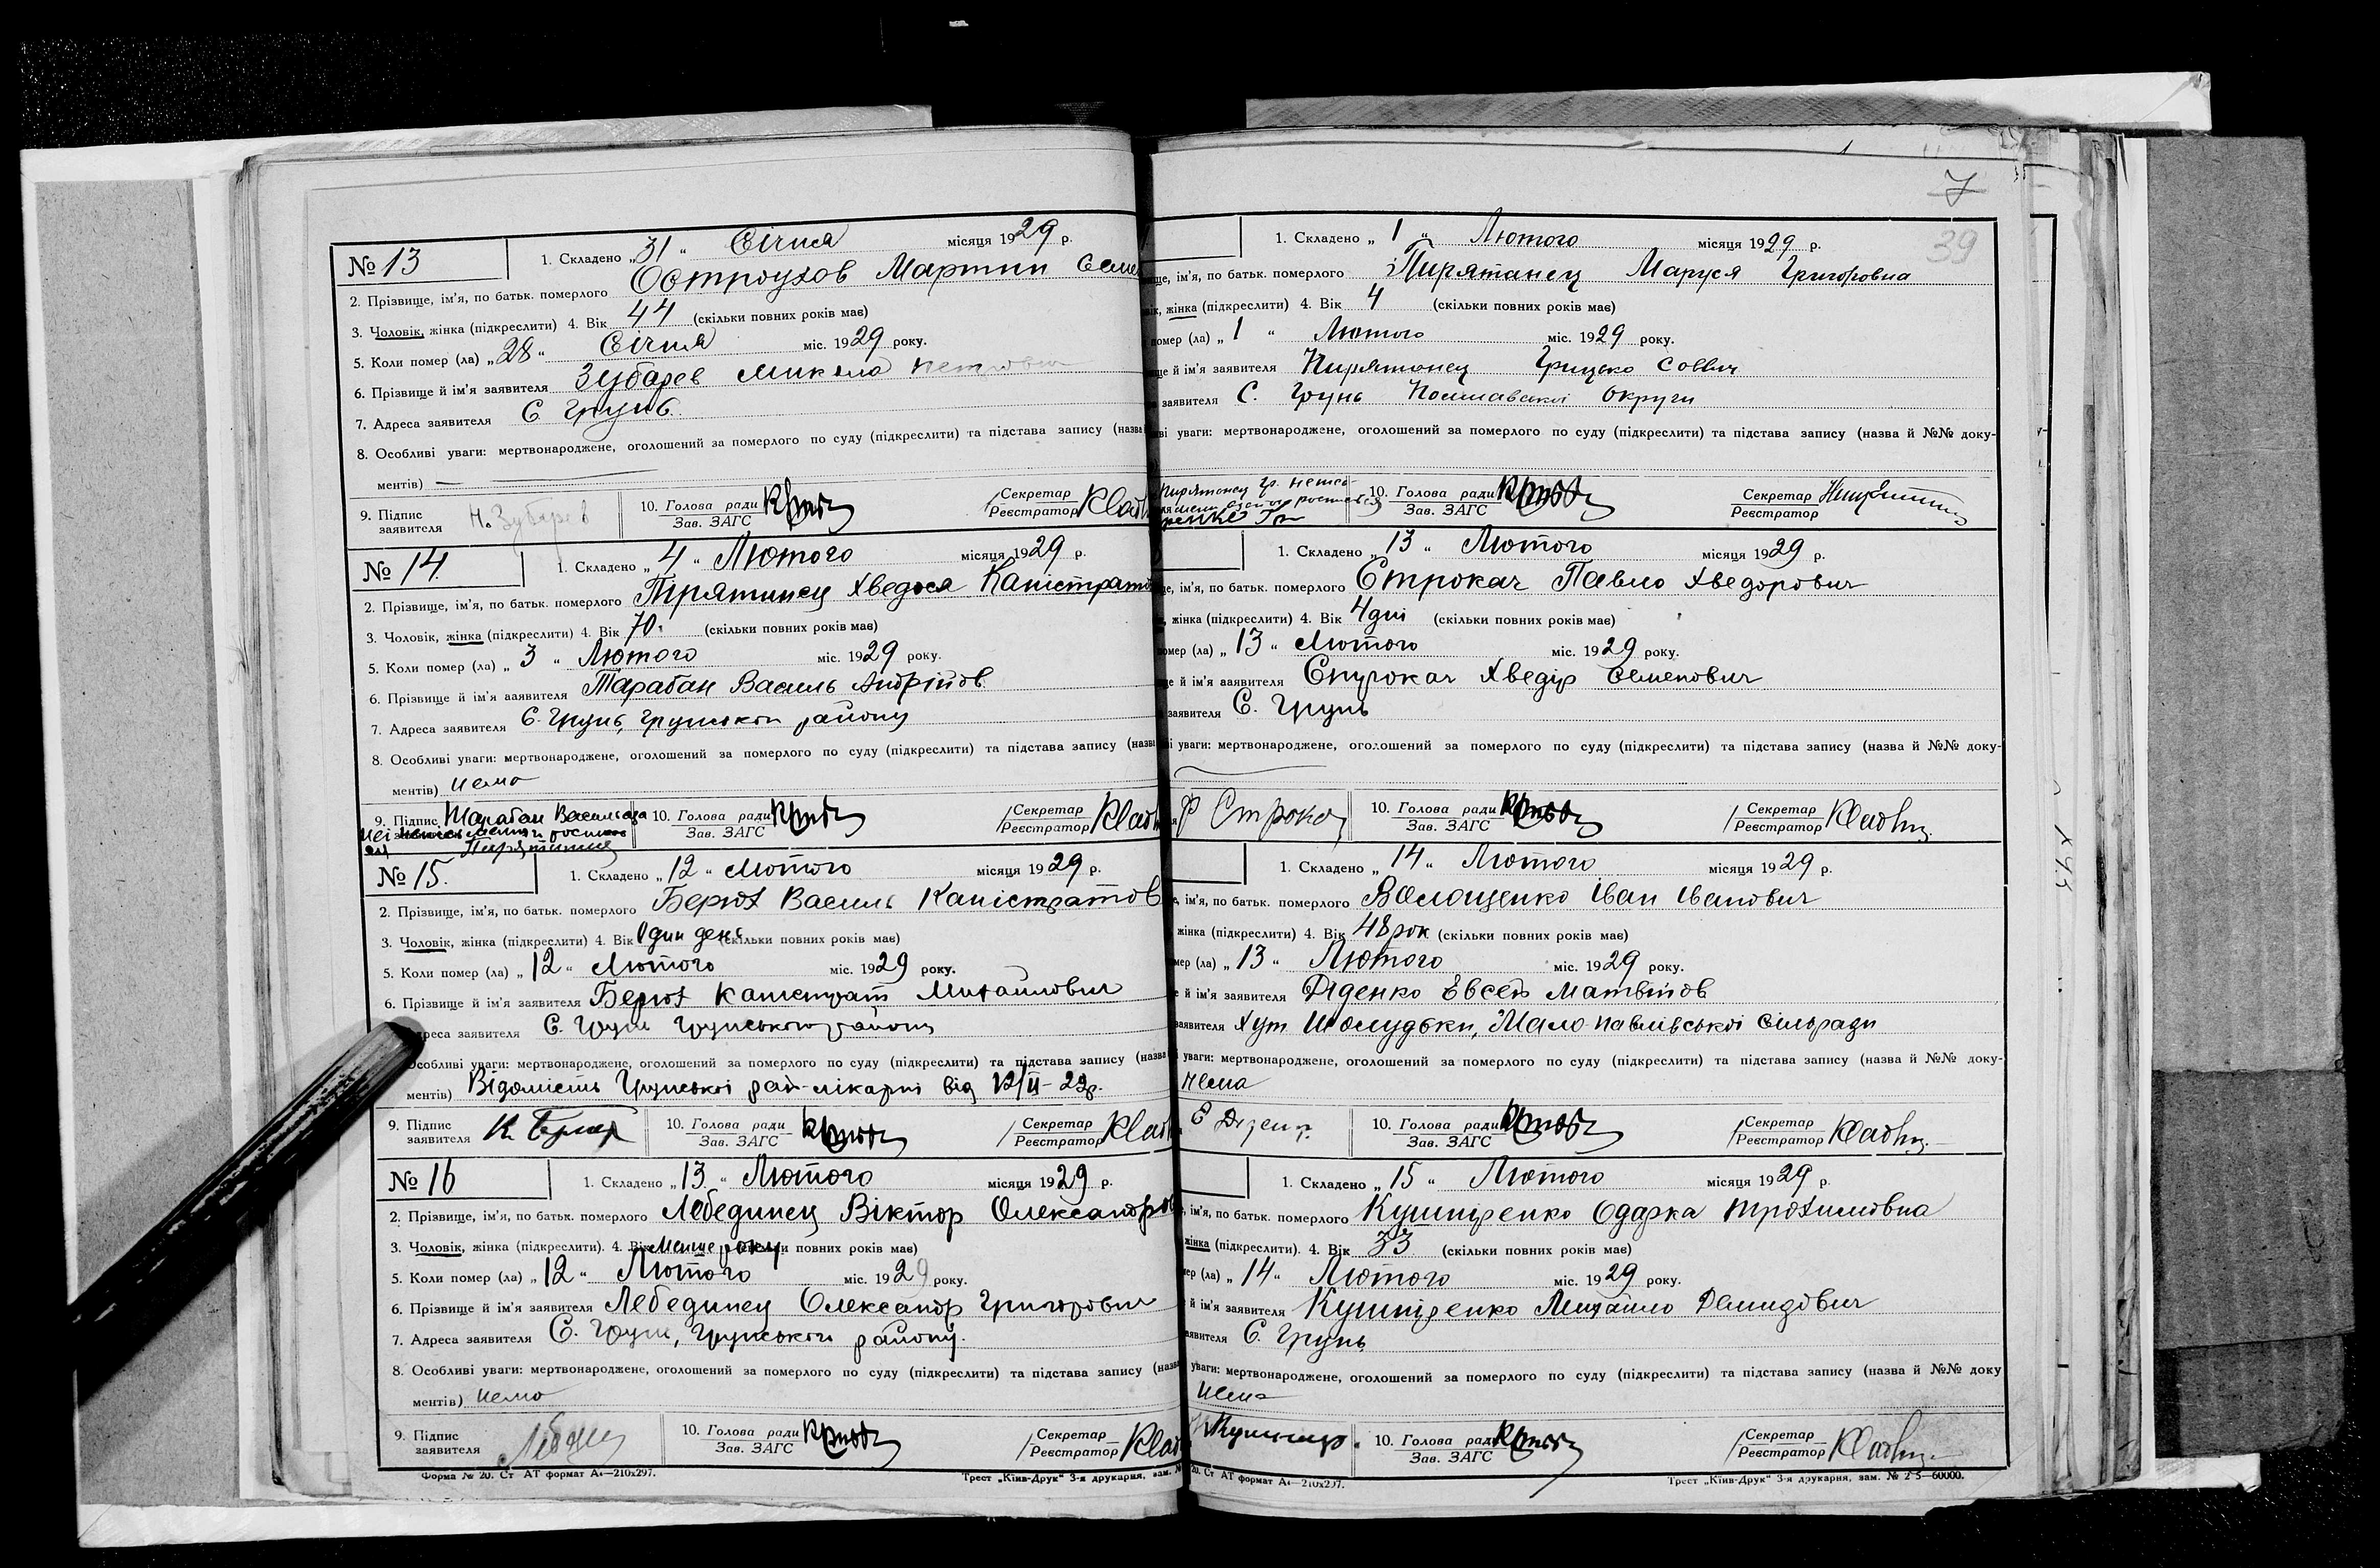 № 13
1. Складено „31“ Січня місяця 1929 р.
2. Прізвище, ім'я, по батьк. померлого Остроухов Мартин Семе
3. Чоловік, жінка (підкреслити) 4. Вік 44 (скільки повних років має)
5. Коли помер (ла) „28“ Січня міс. 1929 року.
6. Прізвище й ім'я заявителя Зубарев Микола
7. Адреса заявителя С. Грунь.
8. Особливі уваги: мертвонароджене, оголошений за померлого по суду (підкреслити) та підстава запису (назва
ментів) —
9. Підпис заявителя Н. Зубарев
10. Голова ради
Зав. ЗАГС
Секретар
Реєстратор
№ 14.
1. Складено „4“ Лютого місяця 1929 р.
2. Прізвище, ім'я, по батьк. померлого Пирятинец Хведося Каністрато
3. Чоловік, жінка (підкреслити) 4. Вік 70. (скільки повних років має)
5. Коли помер (ла) „3“ Лютого міс. 1929 року.
6. Прізвище й ім'я заявителя Тарабан Василь Андріїов.
7. Адреса заявителя С. Грунь, Грунського району
8. Особливі уваги: мертвонароджене, оголошений за померлого по суду (підкреслити) та підстава запису (назва
ментів) нема
9. Підпис Тарабан Василь а за
10. Голова ради
Зав. ЗАГС
Секретар
Реєстратор
№ 15.
1. Складено „12“ Лютого місяця 1929 р.
2. Прізвище, ім'я, по батьк. померлого Берюх Василь Каністратов
3. Чоловік, жінка (підкреслити) 4. Вік Один день (скільки повних років має)
5. Коли помер (ла) „12“ Лютого міс. 1929 року.
6. Прізвище й ім'я заявителя Берюх Каністрат Михайлович
реса заявителя С. Грунь Грунського району
собливі уваги: мертвонароджене, оголошений за померлого по суду (підкреслити) та підстава запису (назва
ментів) Відомість Грунської рай-лікарні від 12/II-29р.
9. Підпис
заявителя К.
10. Голова ради
Зав. ЗАГС
Секретар
Реєстратор
№ 16
1. Складено „13“ Лютого місяця 1929 р.
2. Прізвище, ім'я, по батьк. померлого Лебединец Віктор Олександров
3. Чоловік, жінка (підкреслити). 4. Вік Менше року повних років має)
5. Коли помер (ла) „12“ Лютого міс. 1929 року.
6. Прізвище й ім'я заявителя Лебединец Олександр Григорович
7. Адреса заявителя С. Грунь, Грунського району.
8. Особливі уваги: мертвонароджене, оголошений за померлого по суду (підкреслити) та підстава запису (назва
ментів) нема
9. Підпис
заявителя
10. Голова ради
Зав. ЗАГС
Секретар
Реєстратор
Форма № 20. Ст АТ формат А4—210х297.
Трест „Київ-Друк“ 3-я друкарня, зам. №
7
39
1. Складено „1“ Лютого місяця 1929 р.
ще, ім'я, по батьк. померлого Пирятанец Маруся Григоровна
жінка (підкреслити) 4. Вік 4 (скільки повних років має)
омер (ла) „1“ Лютого міс. 1929 року.
ще й ім'я заявителя Пирятонец Грицько Саввич
заявителя С. Грунь Полтавської Округи
ві уваги: мертвонароджене, оголошений за померлого по суду (підкреслити) та підстава запису (назва й №№ доку-
10. Голова ради
Зав. ЗАГС
Секретар
Реєстратор
1. Складено „13“ Лютого місяця 1929 р.
ще, ім'я, по батьк. померлого Строкач Павло Хведорович
жінка (підкреслити) 4. Вік 4 дні (скільки повних років має)
омер (ла) „13“ Лютого міс. 1929 року.
ще й ім'я заявителя Строкач Хведір Семенович
заявителя С. Грунь
і уваги: мертвонароджене, оголошений за померлого по суду (підкреслити) та підстава запису (назва й №№ доку-
Ф Строкач
10. Голова ради
Зав. ЗАГС
Секретар
Реєстратор
1. Складено „14“ Лютого місяця 1929 р.
е, ім'я, по батьк. померлого Волощенко Іван Іванович
жінка (підкреслити) 4. Вік 48 рок (скільки повних років має)
мер (ла) „13“ Лютого міс. 1929 року.
е й ім'я заявителя Діденко Евсей Матвіїов
заявителя Хут Шолудьки, Мало-Павлівської Сільради
уваги: мертвонароджене, оголошений за померлого по суду (підкреслити) та підстава запису (назва й №№ доку-
Нема
10. Голова ради
Зав. ЗАГС
Секретар
Реєстратор
1. Складено „15“ Лютого місяця 1929 р.
, ім'я, по батьк. померлого Кушніренко Одарка Трохимовна
жінка (підкреслити). 4. Вік 33 (скільки повних років має)
ер (ла) „14“ Лютого міс. 1929 року.
й ім'я заявителя Кушніренко Михайло Демидович
аявителя С. Грунь
уваги: мертвонароджене, оголошений за померлого по суду (підкреслити) та підстава запису (назва й №№ доку
нема
Кушнір.
10. Голова ради
Зав. ЗАГС
Секретар
Реєстратор
20. Ст АТ формат А4—210х297.
Трест „Київ-Друк“ 3-я друкарня, зам. № 2 5—60000.